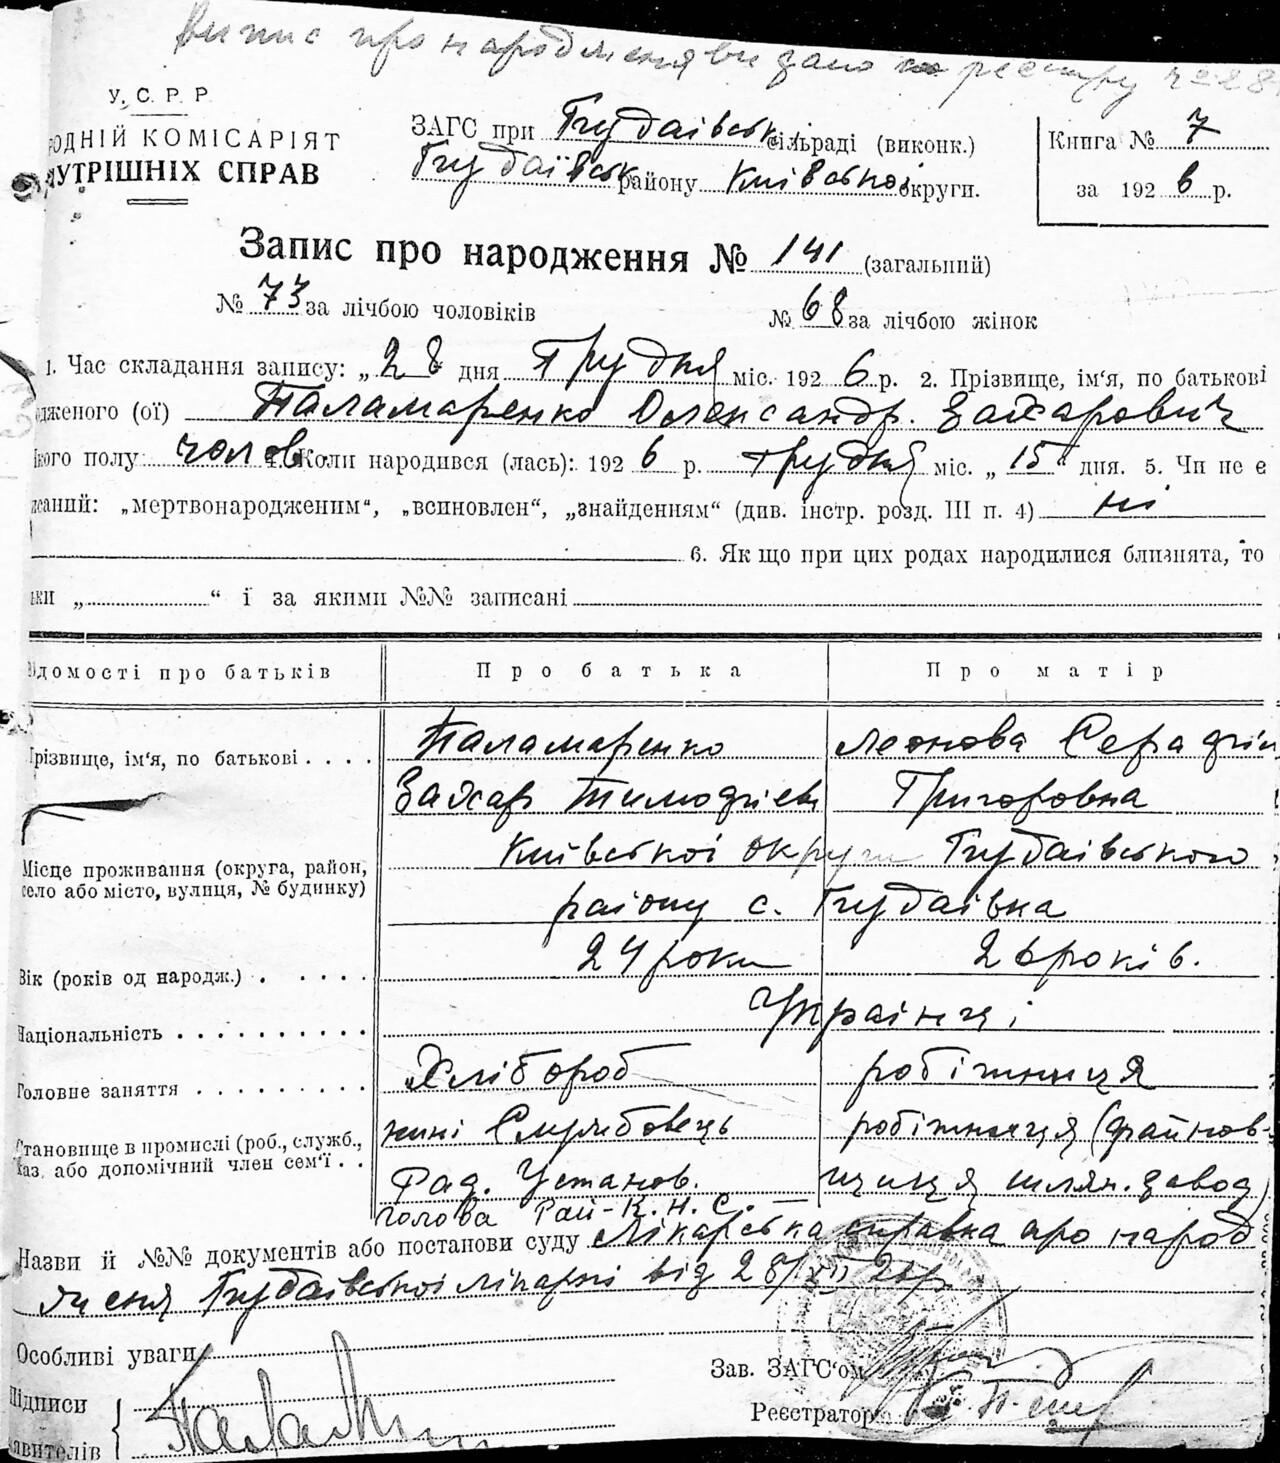 Випис про народження видано по реєстру № 28
У.С.Р.Р.
РОДНІЙ КОМІСАРІЯТ
УТРІШНІХ СПРАВ
ЗАГС при Гнудаївськ. сільраді (виконк.)
Гнудаївськ. району Київської округи.
Книга № 7
за 1926 р.
Запис про народження № 141 (загальний)
№ 73 за лічбою чоловіків
№ 68 за лічбою жінок
1. Час складання запису: „28 дня Грудня міс. 1926 р. 2. Прізвище, ім‘я, по батькові
дженого (ої) Паламаренко Олександр. Захарович
кого полу чолов. 4. Коли народився (лась): 1926 р. грудня міс. „15“ дня. 5. Чи не є
исаний: „мертвонародженим“, „всиновлен“, „знайденням“ (див. інстр. розд. III п. 4) ні
6. Як що при цих родах народилися близнята, то
ьки „ “ і за якими №№ записані
ідомості про батьків
Про батька
Про матір
Прізвище, ім‘я, по батькові
Паламаренко
Леонова Серафіи
Захар Тимофієв
Григоровна
Місце проживання (округа, район,
село або місто, вулиця, № будинку)
Київської округи Гнудаївського
району с. Гнудаївка
Вік (років од народж.)
24 роки
26 років.
Національність
Українці
Головне заняття
Хлібороб
робітниця
Становище в промислі (роб., служб.,
каз. або допомічний член сем‘ї
нині Службовець
робітниця (файнов-
Рад. Установ.
щиця шлян. завод)
голова Рай-К.Н.С. —
Назви й №№ документів або постанови суду Лікарська справка про народ
женя Гнудаївської лікарні від 28/XII 26 р.
Особливі уваги
Зав. ЗАГС‘ом
Підписи
явителів
Реєстратор